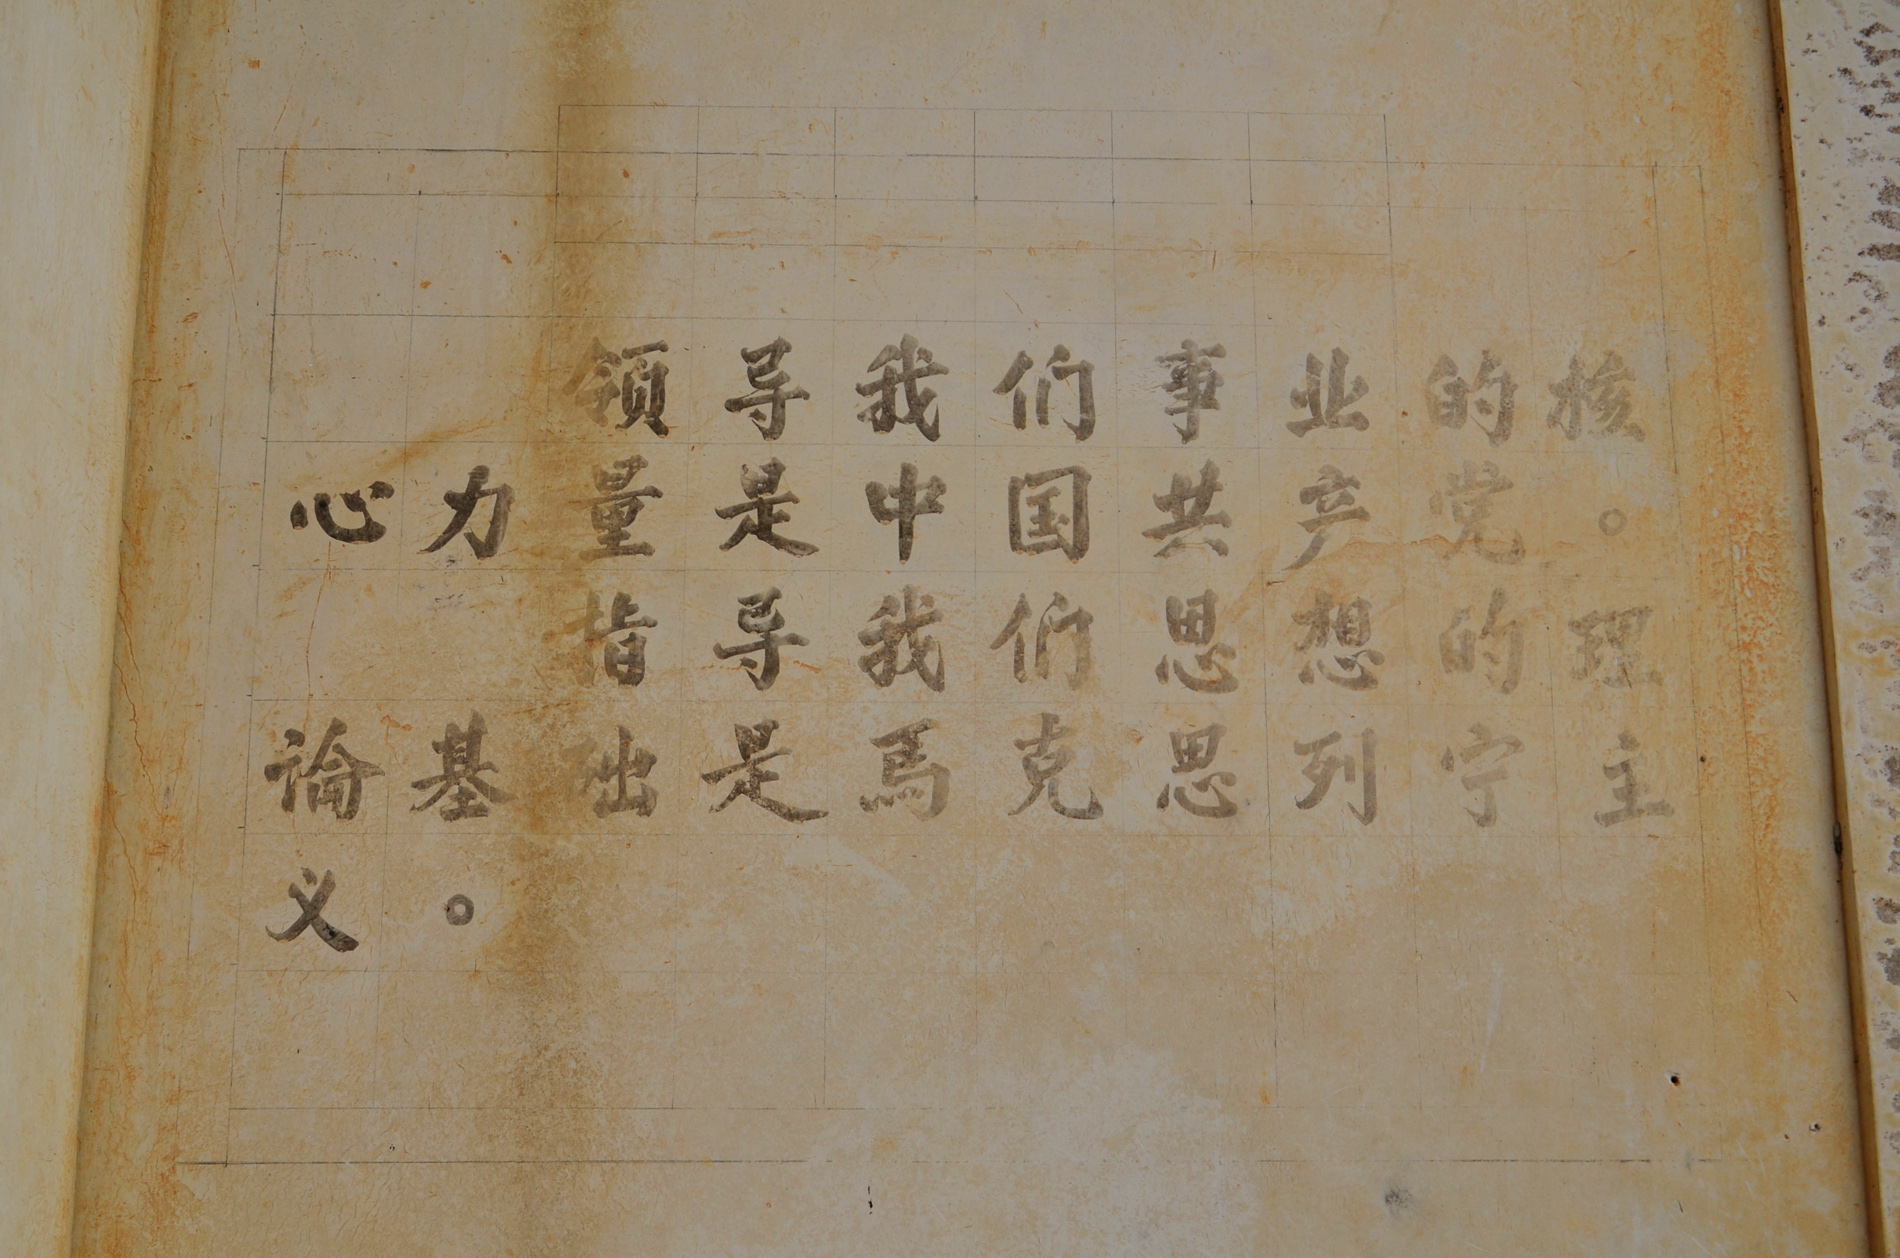 领导我们事业的核
心力量是中国共产党。
指导我们思想的理
論基础是馬克思列宁主
义。